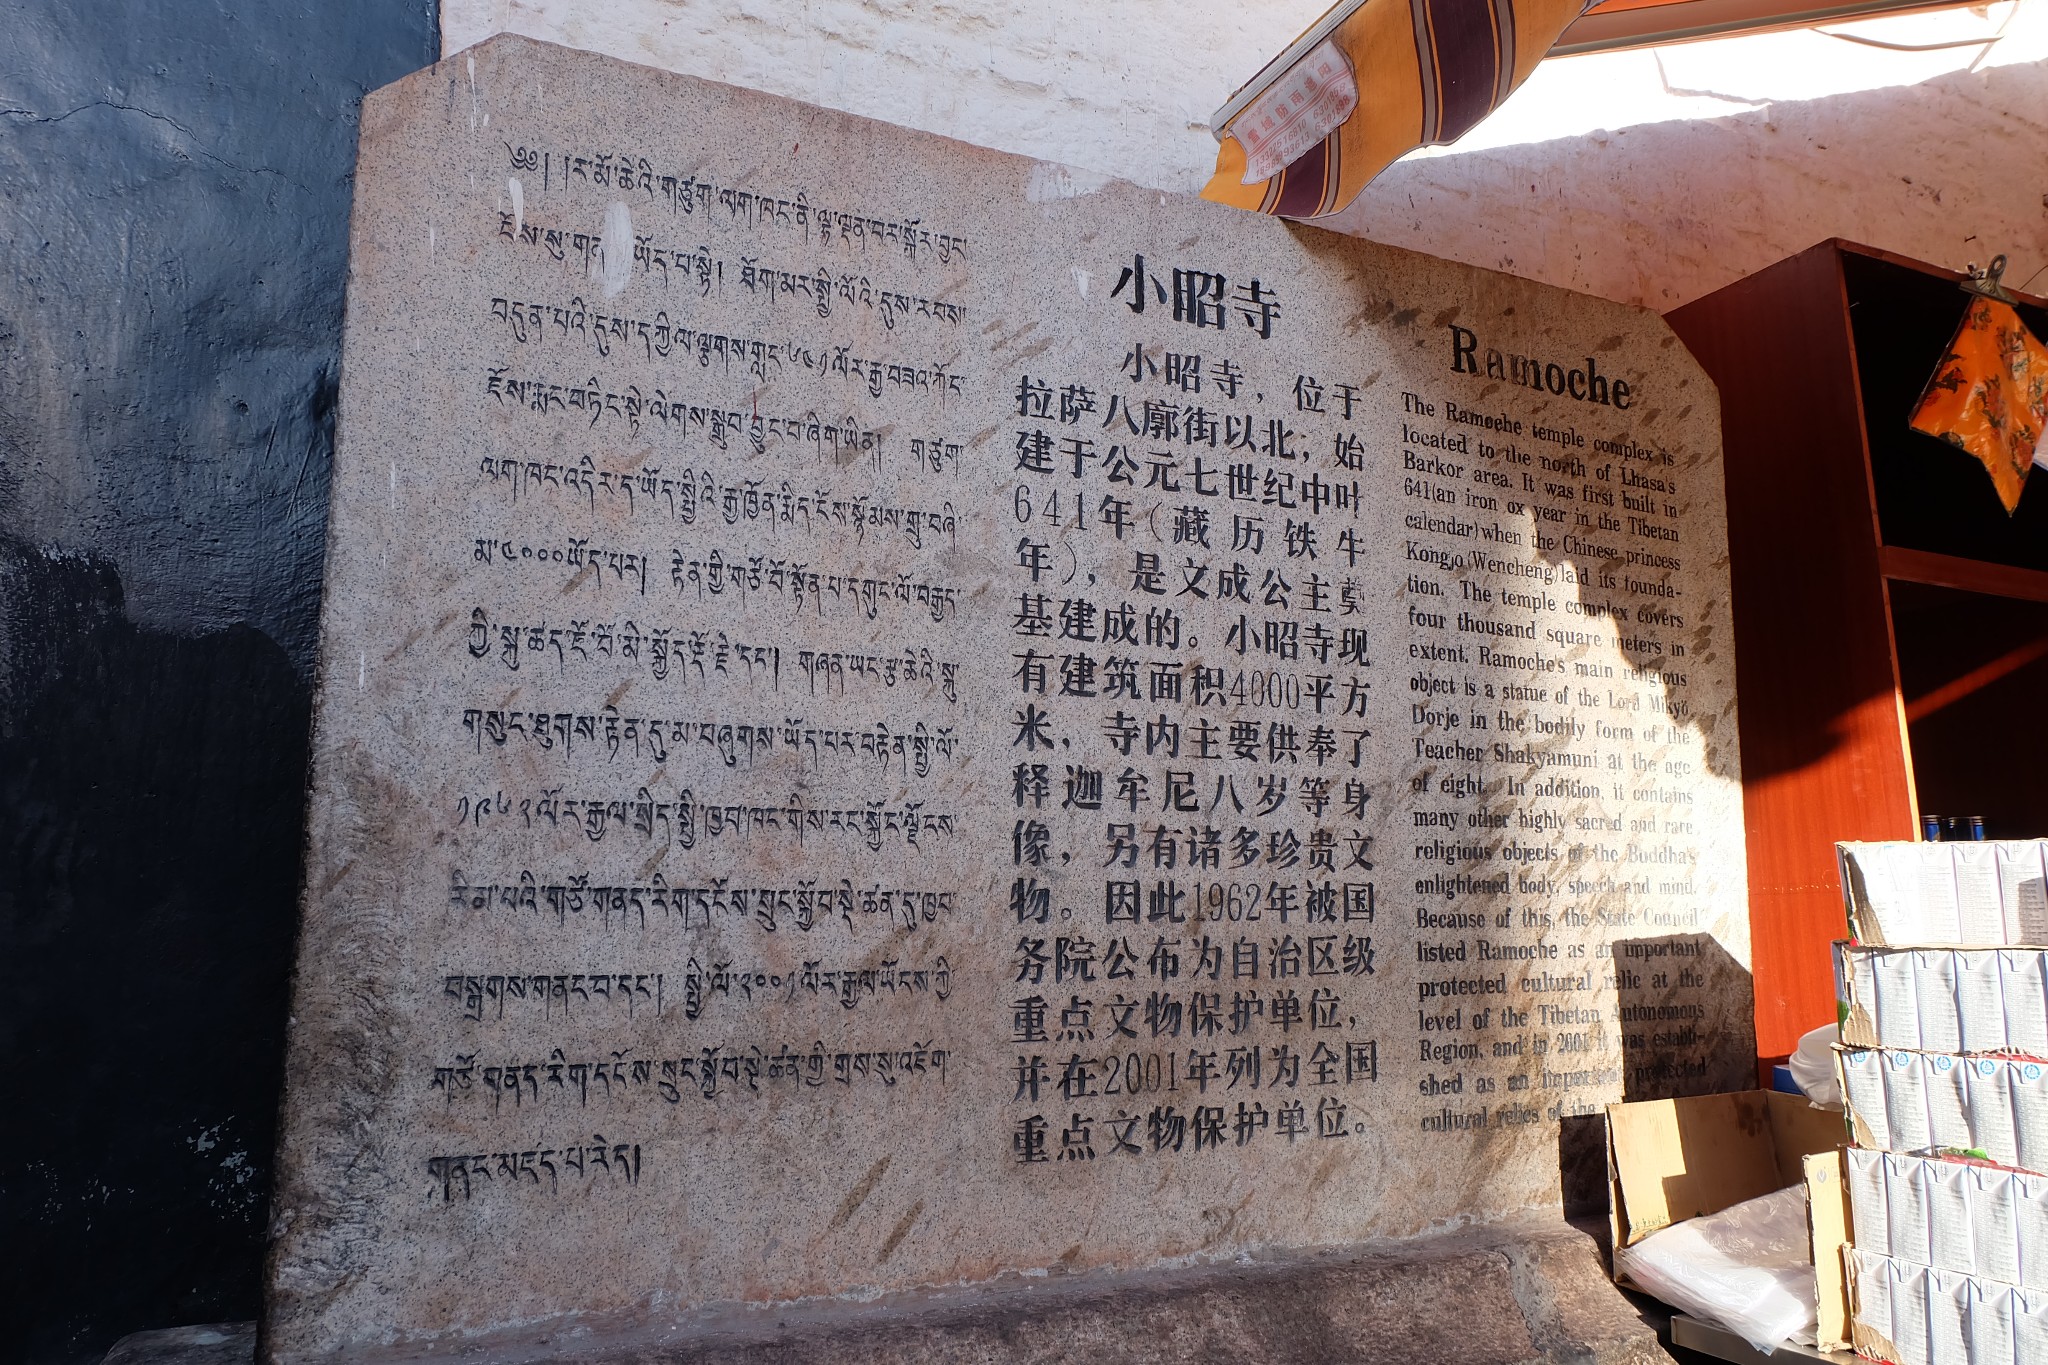 ༄༅། །ར་མོ་ཆེའི་གཙུག་ལག་ཁང་ནི་ལྷ་ལྡན་བར་སྐོར་བྱང་
ངོས་སུ་གནས་ཡོད་པ་སྟེ། ཐོག་མར་སྤྱི་ལོའི་དུས་རབས་
བདུན་པའི་དུས་དཀྱིལ་ལྕགས་གླང་༦༤༡ལོར་རྒྱ་བཟའ་ཀོང་
ཇོས་རྨང་བཏིང་སྟེ་ལེགས་སྒྲུབ་བྱུང་བ་ཞིག་ཡིན། གཙུག་
ལག་ཁང་འདིར་ད་ཡོད་སྤྱིའི་རྒྱ་ཁྱོན་མིད་ངོས་སྙོམས་གྲུ་བཞི་
མ་༤༠༠༠ཡོད་པར། རྟེན་གྱི་གཙོ་བོ་སྟོན་པ་དགུང་ལོ་བརྒྱད་
ཀྱི་སྐུ་ཚད་ཇོ་བོ་མི་སྐྱོད་རྡོ་རྗེ་དང་། གཞན་ཡང་རྩ་ཆེའི་སྐུ་
གསུང་ཐུགས་རྟེན་དུ་མ་བཞུགས་ཡོད་པར་བརྟེན་སྤྱི་ལོ་
༡༩༦༢ལོར་རྒྱལ་སྲིད་སྤྱི་ཁྱབ་ཁང་གིས་རང་སྐྱོང་ལྗོངས་
རིམ་པའི་གཙོ་གནད་རིག་དངོས་སྲུང་སྐྱོབ་སྡེ་ཚན་དུ་ཁྱབ་
བསྒྲགས་གནང་བ་དང་། སྤྱི་ལོ་༢༠༠༡ལོར་རྒྱལ་ཡོངས་ཀྱི་
གཙོ་གནད་རིག་དངོས་སྲུང་སྐྱོབ་སྡེ་ཚན་གྱི་གྲས་སུ་འཇོག་
གནང་མཛད་པ་རེད།
小昭寺
小昭寺，位于
拉萨八廓街以北；始
建于公元七世纪中叶
641年(藏历铁牛
年)，是文成公主奠
基建成的。小昭寺现
有建筑面积4000平方
米，寺内主要供奉了
释迦牟尼八岁等身
像，另有诸多珍贵文
物。因此1962年被国
务院公布为自治区级
重点文物保护单位，
并在2001年列为全国
重点文物保护单位。
Ramoche
The Ramoche temple complex is
located to the north of Lhasa's
Barkor area. It was first built in
641(an iron ox year in the Tibetan
calendar)when the Chinese princess
Kongjo(Wencheng)laid its founda-
tion. The temple complex covers
four thousand square meters in
extent. Ramoche's main religious
object is a statue of the Lord Mikyö
Dorje in the bodily form of the
Teacher Shakyamuni at the age
of eight. In addition, it contains
many other highly sacred and rare
religious objects of the Buddha's
enlightened body, speech and mind.
Because of this, the State Council
listed Ramoche as an important
protected cultural relic at the
level of the Tibetan Autonomous
Region, and in 2001 it was establi-
shed as an important protected
cultural relics of the